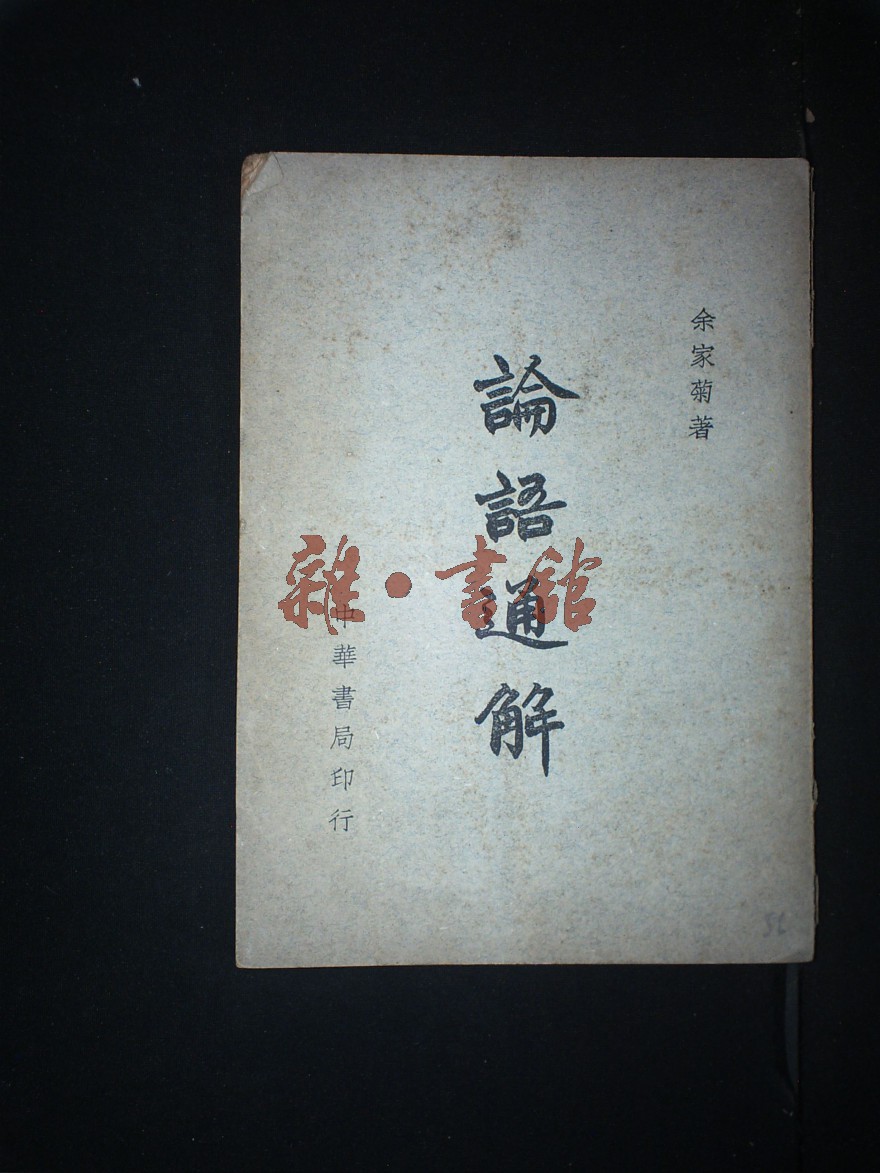 余家菊著
論語通解
中華書局印行
雜·書館
51